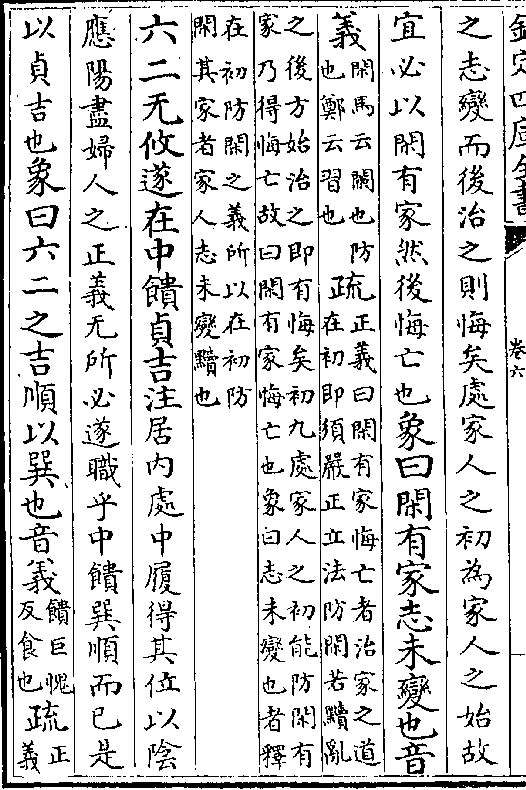 欽定四庫全書
卷六
之志變而後治之則悔矣處家人之初為家人之始故
宜必以閑有家然後悔亡也象曰閑有家志未變也音
義閑馬云闌也防
也鄭云習也
疏正義曰閑有家悔亡者治家之道
在初即須嚴正立法防閑若黷亂
之後方始治之即有悔矣初九處家人之初能防閑有
家乃得悔亡故曰閑有家悔亡也象曰志未變也者釋
在初防閑之義所以在初防
閑其家者家人志未變黷也
六二无攸遂在中饋貞吉注居内處中履得其位以陰
應陽盡婦人之正義无所必遂職乎中饋巽順而已是
以貞吉也象曰六二之吉順以巽也音義饋巨愧
反食也
疏正
義